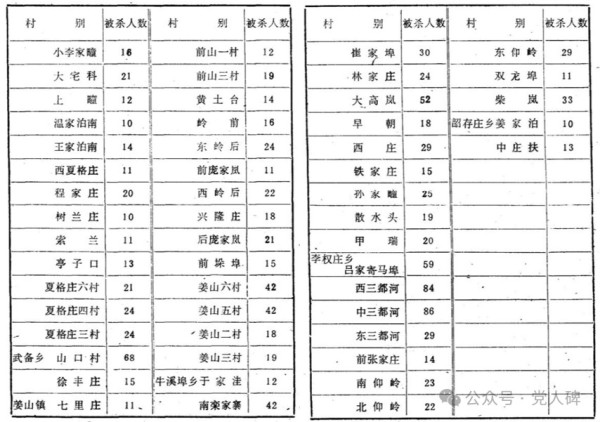 村 别 被杀人数 村 别 被杀人数
小李家疃 16 前山一村 12
大宅科 21 前山三村 19
上 疃 12 黄土台 14
温家泊南 10 岭 前 16
王家泊南 14 东岭后 24
西夏格庄 11 前庞家岚 11
程家庄 20 西岭后 22
树兰庄 10 兴隆庄 18
索 兰 11 后庞家岚 21
亭子口 13 前垛埠 15
夏格庄六村 21 姜山六村 42
夏格庄四村 24 姜山五村 42
夏格庄三村 24 姜山二村 18
武备乡 山口村 68 姜山三村 19
徐丰庄 15 牛溪埠乡于家洼 12
姜山镇 七里庄 11 南栾家寨 42
村 别 被杀人数 村 别 被杀人数
崔家埠 30 东仰岭 29
林家庄 24 双龙埠 11
大高岚 52 柴 岚 33
早 朝 18 韶存庄乡姜家泊 10
西 庄 29 中庄扶 13
铁家庄 15
孙家疃 25
散水头 19
甲 瑞 20
李权庄乡
吕家寄马埠 59
西三都河 84
中三都河 86
东三都河 29
前张家庄 14
南仰岭 23
北仰岭 22
公众号·党人碑